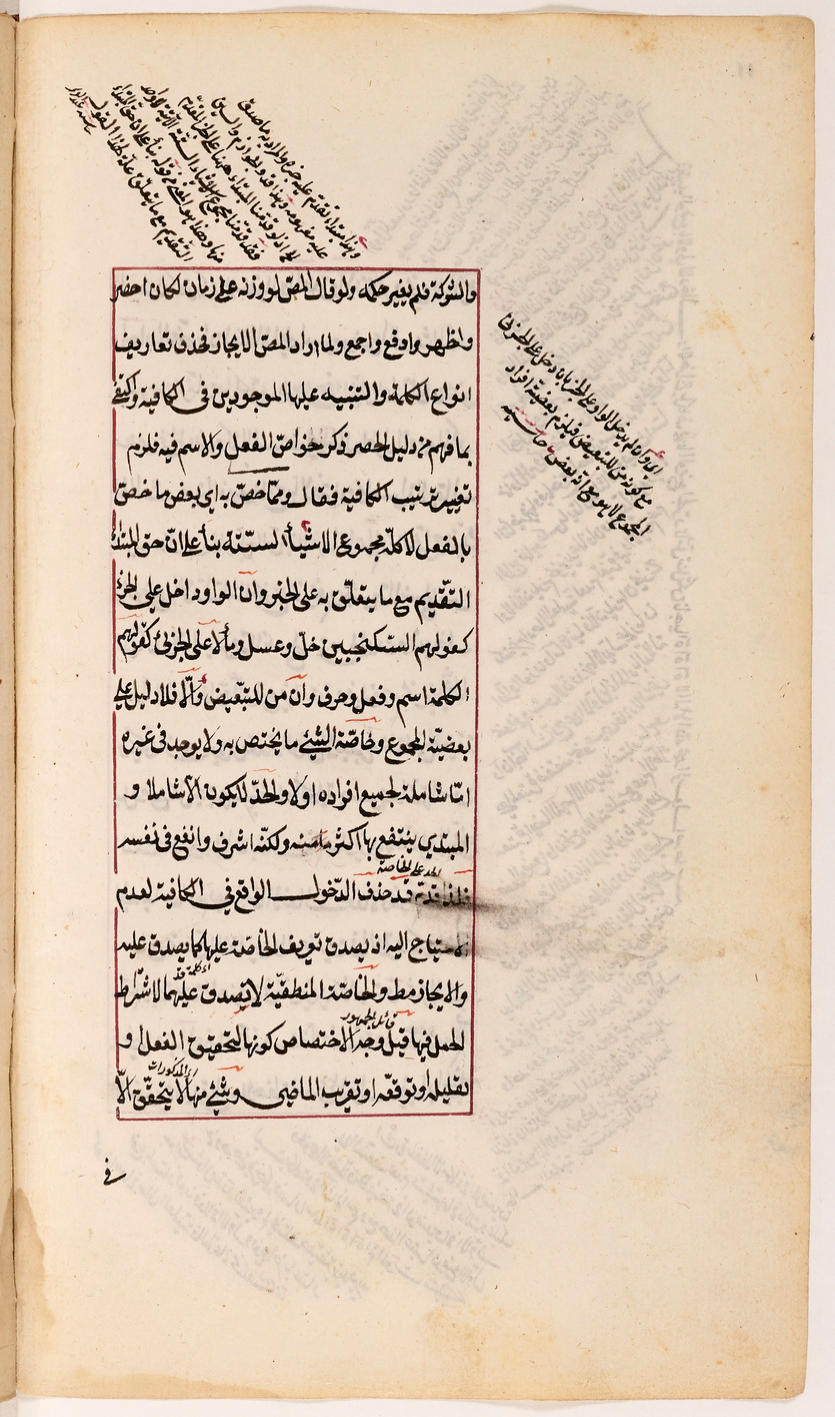 والشوكة فلم يغير حكمه ولو قال المص لو وزنه على زمان لكان احضر
واظهر واوقع واجمع ولما اراد المص الايجاز فحذف تعاريف
انواع الكلمة والتنبيه عليها الموجودين فى الكافية واكتفى
بما فهم من دليل الحصر ذكر خواصّ الفعل والاسم فيه فلزم
تغيير ترتيب الكافية فقال وممّا خصّ به اى بعض ما خصّ
بالفعل لا كلّه مجموع الاشيأ الستة بنأ على انّ حق المبتدا
التقديم مع ما يتعلّق به على الخبر وانّ الواو داخل على الجزء
كقولهم السكنجبين خلّ وعسل ومأ لا على الجزئ كقولهم
الكلمة اسم وفعل وحرف وانّ من للتبعيض والّا فلا دليل على
بعضيّة المجموع وخاصّة الشيئ ما يختص به ولا يوجد فى غيره
امّا شاملة لجميع افراده او لا والحدّ لا يكون الّا شاملا و
المبتدي ينتفع بها اكثر ما منه ولكنّه اشرف وانفع فى نفسه
الحد على الخاصة
فلذا قدّم قد حذف الدّخول الواقع في الكافية لعدم
الاحتياج اليه اذ يصدق تعريف الخاصّة عليها كما يصدق عليه
والايجاز مط والخاصّة المنطقيّة لا تصدق عليهما لاشتراط
الحمل فيها قيل وجه الاختصاص كونها لتحقيق الفعل او
قائل الجمهور
تقليله او توقّعه او تقريب الماضى وشيئ منها لا يتحقّق الّا
اى المذكورات
في
اى وان لم يدخل الواو على الجزء بان دخل على الجزئى
مع كون من للتبعيض فيلزم بعضية افراد
المجموع لا هو مع انه بعض حاشيه